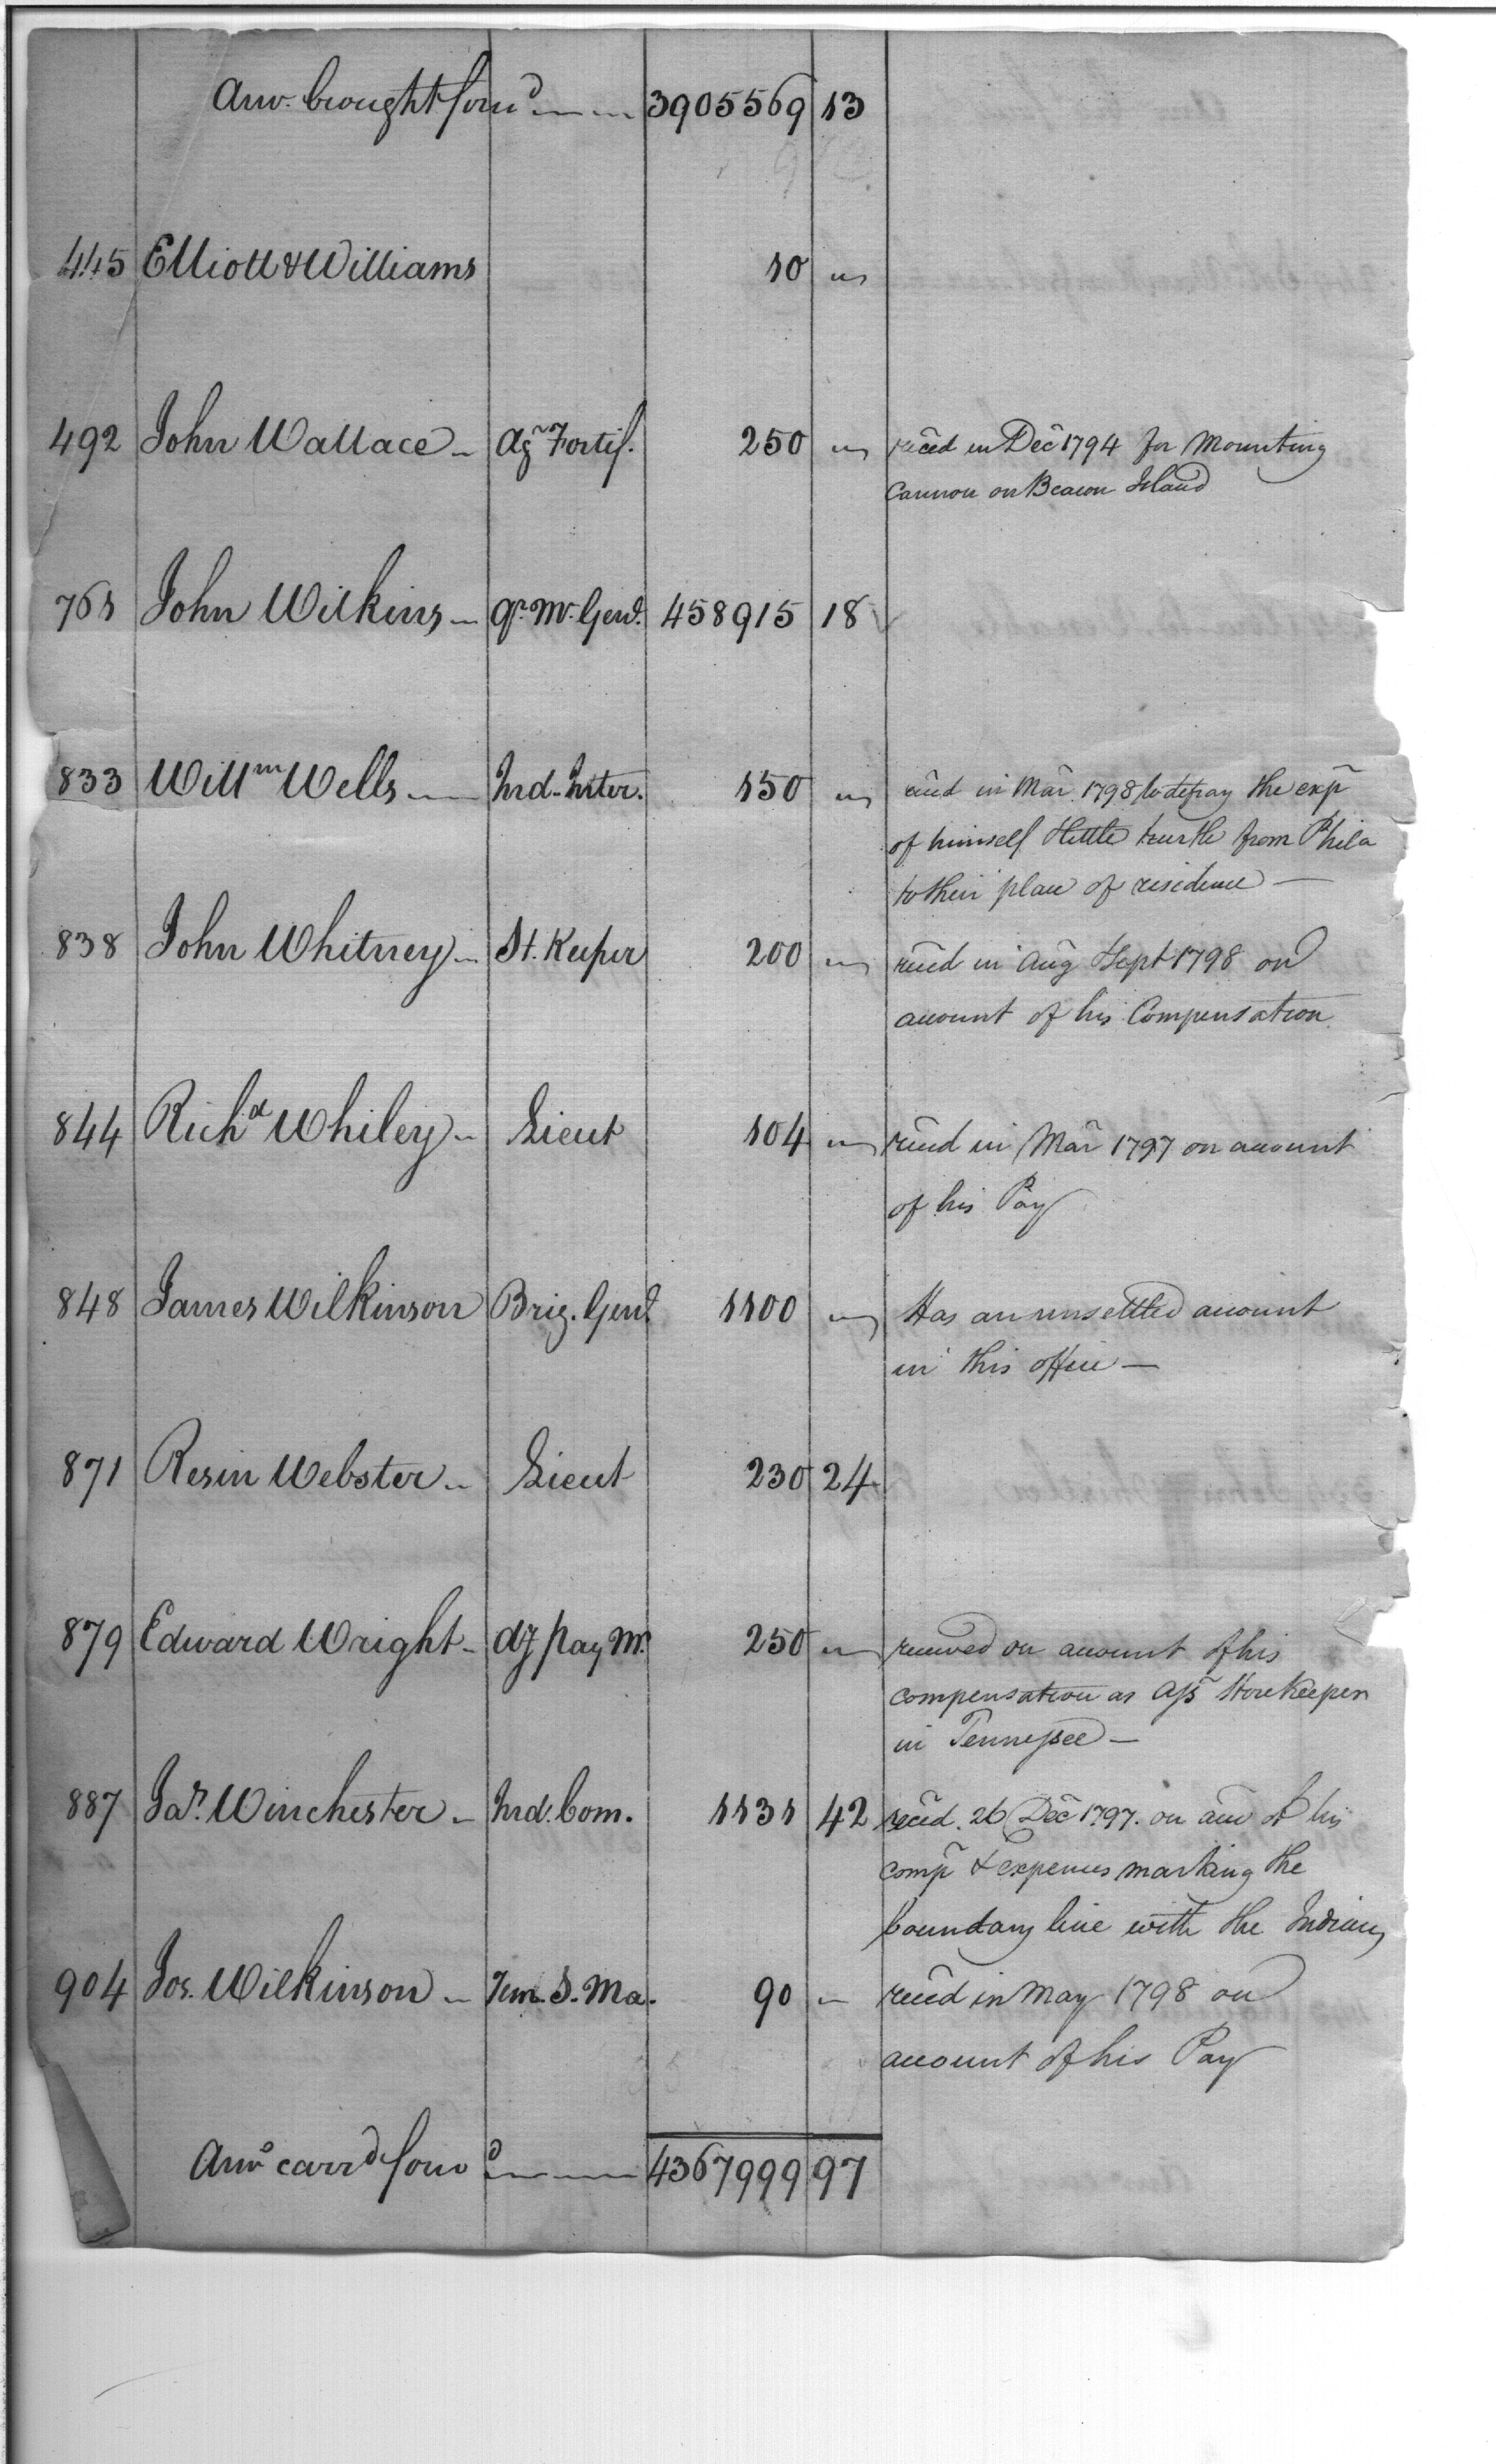 Amo. brought forwd 3905569 13
445 Elliott & Williams 10 "
492 John Wallace - Agt Fortif. 250 " reced in Dec 1794 for Mounting
Cannon on Beacon Island
761 John Wilkins - Qr. Mr. Genl. 458915 18
833 Willm Wells - Ind. Inter. 150 " recd in Mar. 1798 to defray the exps
of himself & little turtle from Phila
to their place of residence -
838 John Whitney - St. Keeper 200 " recd in Aug & Sept 1798 on
account of his Compensation
844 Richd Whiley - Lieut 104 " recd in Mar 1797 on account
of his Pay
848 James Wilkinson Brig. Genl. 1100 " Has an unsettled account
in this office -
871 Resin Webster - Lieut 230 24
879 Edward Wright - dy pay Mr. 250 " received on account of his
compensation as Asst Store Keeper
in Tennessee -
887 Jas. Winchester - Ind. Com. 1131 42 recd. 26 Dec 1797. on acco of his
comp & expences marking the
boundary line with the Indians
904 Jos. Wilkinson - Tem. S. Ma. 90 - recd in May 1798 on
account of his Pay
Amo carrd forwd 4367999 97